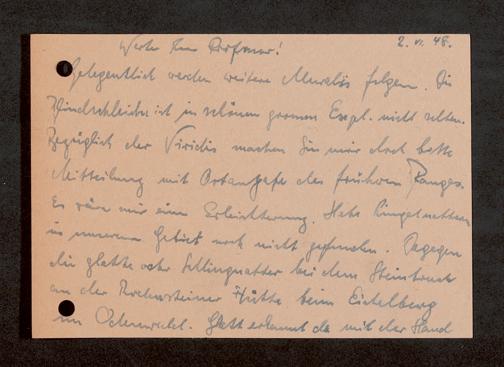 2. VI. 48.
Werter Herr Professor!
Gelegentlich werden weitere Muralis folgen. Die
Blindschleiche ist in schönen grossen Expl. nicht selten.
Bezüglich der Viridis machen Sie mir doch bitte
Mitteilung mit Ortsangabe des früheren Fanges.
Es wäre mir eine Erleichterung. Habe Ringelnattern
in unserem Gebiet noch nicht gefunden. Dagegen
die glatte oder Schlingnatter bei dem Steinbruch
an der Hütte beim Eichelberg
im Odenwald. Glatt erkannt da mit der Hand